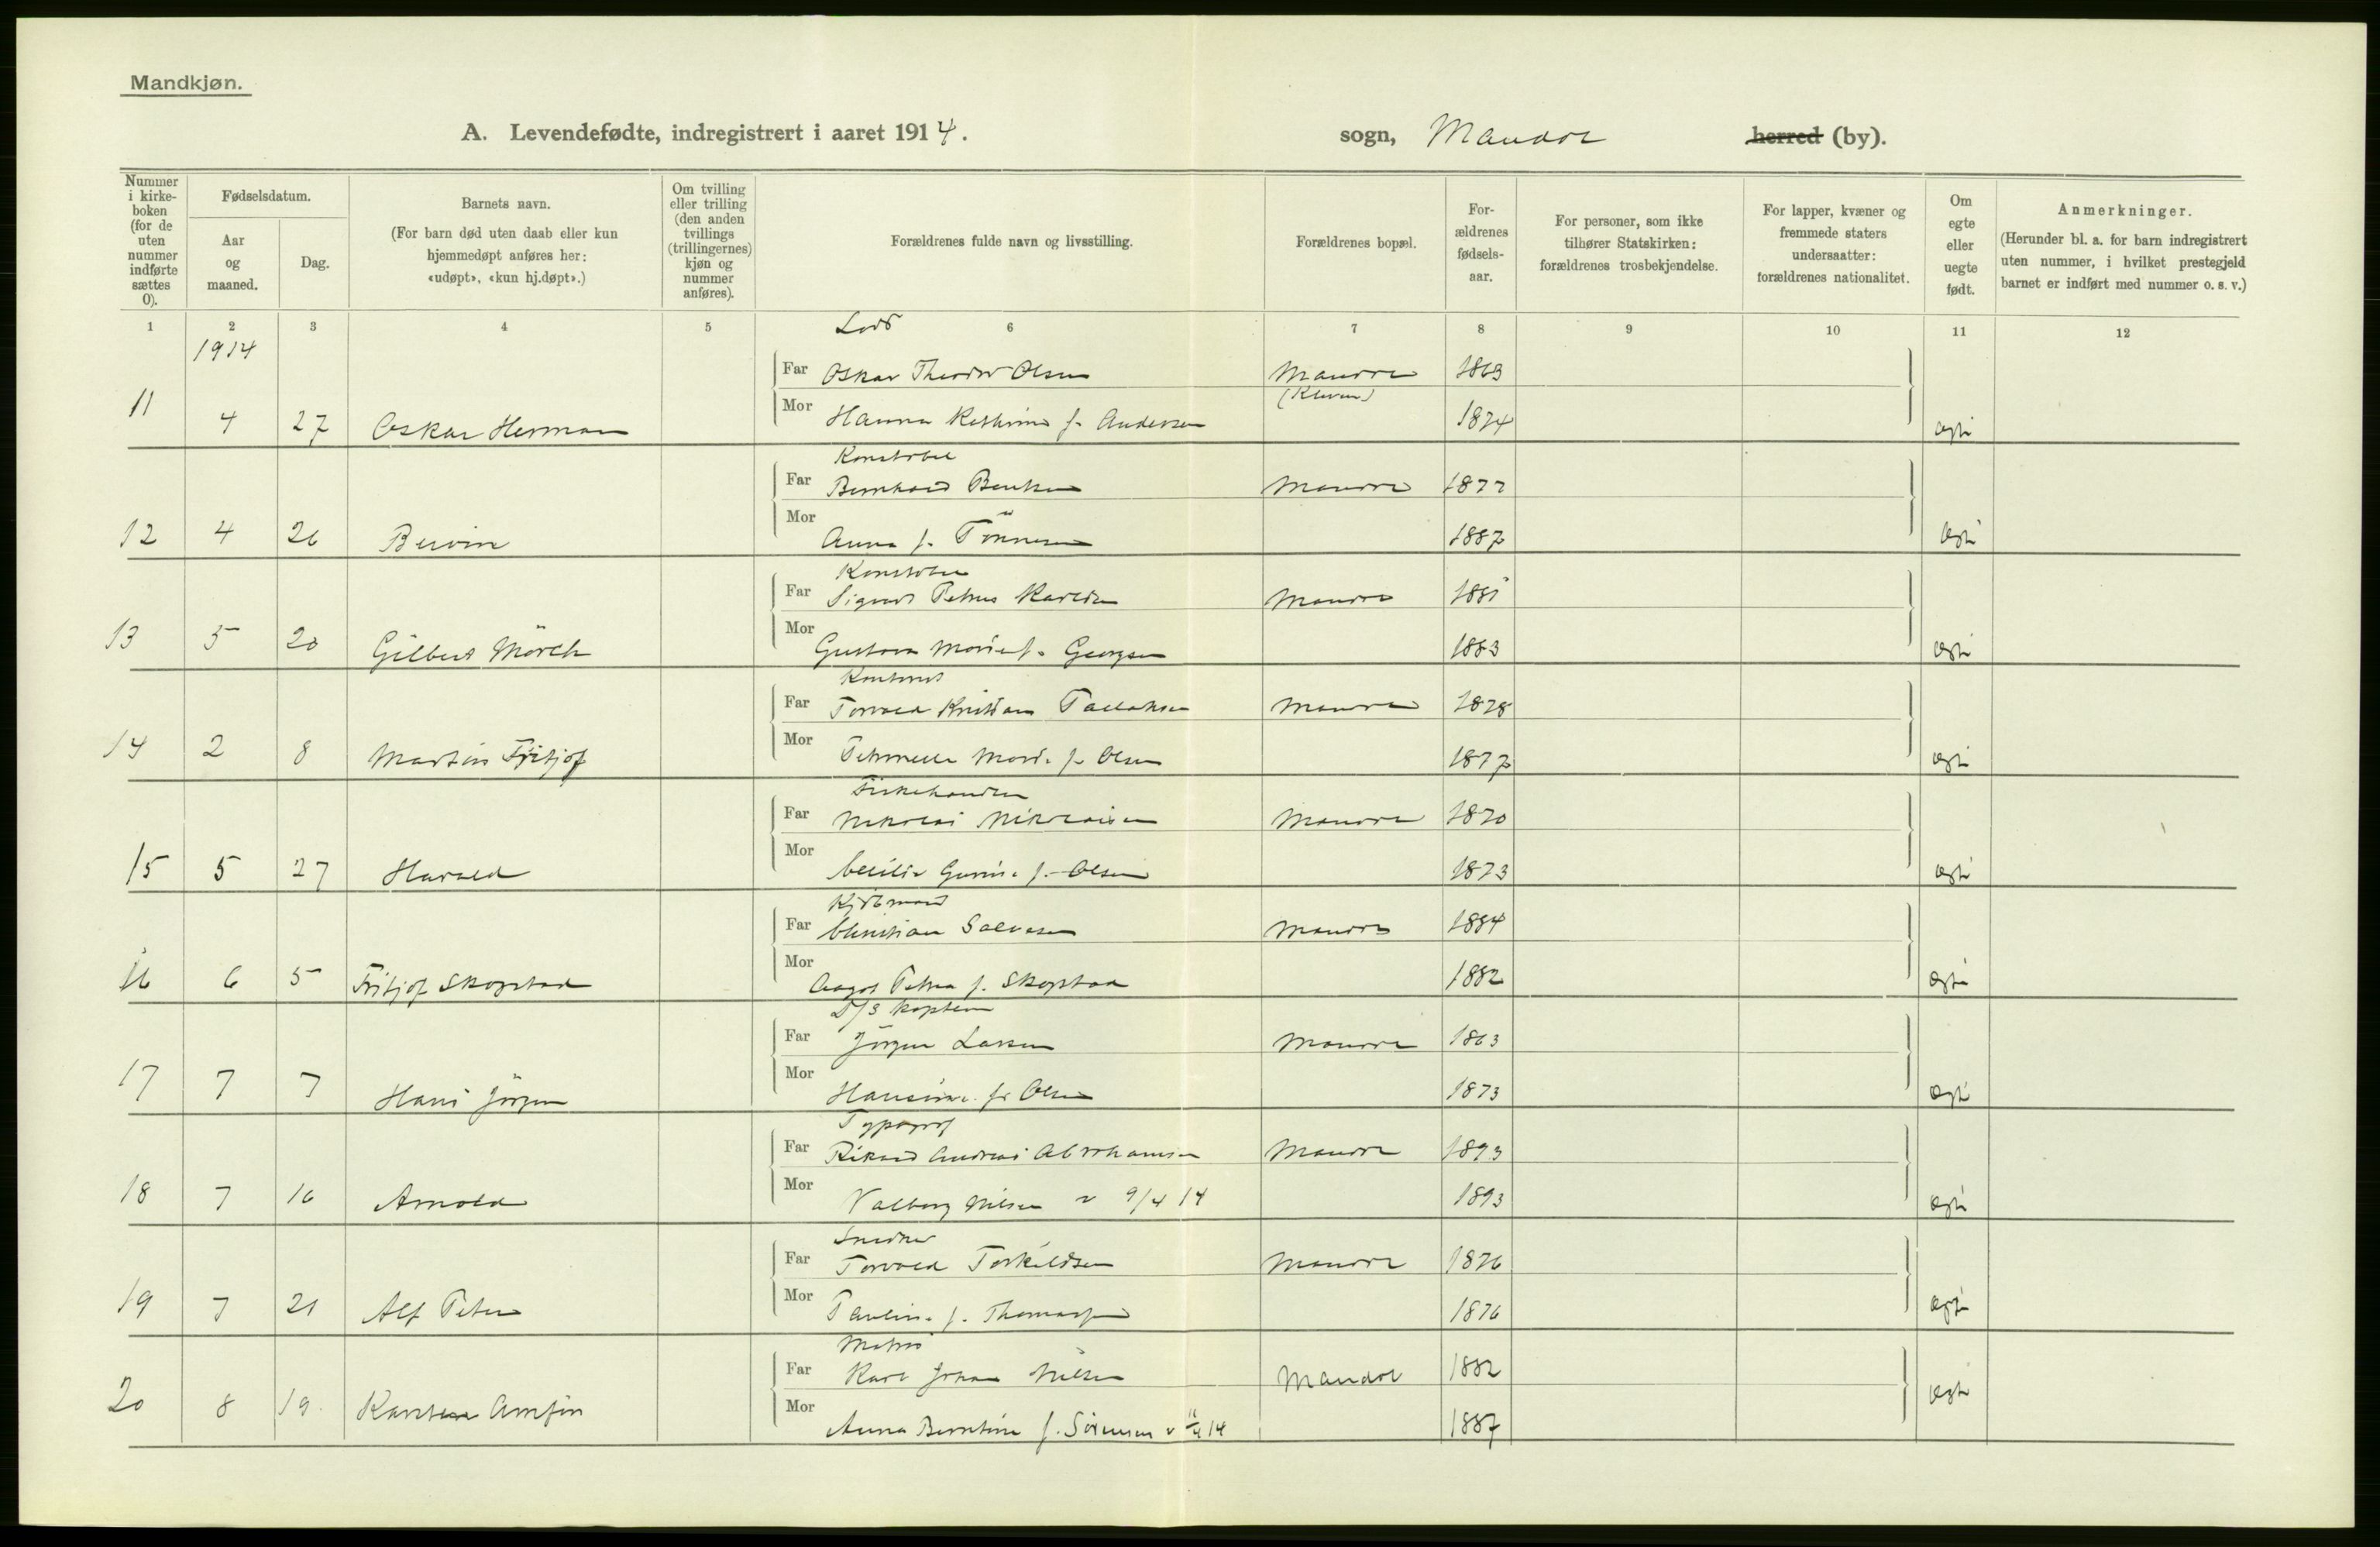 Mandkjøn.
A. Levendefødte, indregistrert i aaret 1914. sogn, Mandal herred (by).
Nummer i kirkeboken (for de uten nummer indførte sættes 0).
Fødselsdatum.
Aar og maaned.
Dag.
Barnets navn.
(For barn død uten daab eller kun hjemmedøpt anføres her: «udøpt», «kun hj.døpt».)
Om tvilling eller trilling (den anden tvillings (trillingernes) kjøn og nummer anføres).
Forældrenes fulde navn og livsstilling.
Forældrenes bopæl.
Forældrenes fødselsaar.
For personer, som ikke tilhører Statskirken: forældrenes trosbekjendelse.
For lapper, kvæner og fremmede staters undersaatter: forældrenes nationalitet.
Om egte eller uegte født.
Anmerkninger.
(Herunder bl. a. for barn indregistrert uten nummer, i hvilket prestegjeld barnet er indført med nummer o. s. v.)
1 2 3 4 5 6 7 8 9 10 11 12
1914
Lods
Far Oskar Theodor Olsen Mandal 1869
(Kleven)
11 4 27 Oskar Herman Mor Hanna f. Andersen 1874 Egte
Konstabel
Far Bernhard Mandal 1877
12 4 26 Mor Anna f. Tönnesen 1887 Egte
Konstabel
Far Sigurd Petrus Karlsen Mandal 1881
13 5 20 Gilbert Mörch Mor Gustava Marie f. Georgsen 1883 Egte
Far Torvald Kristian Tallaksen Mandal 1878
14 2 8 Martin Fritjof Mor f. Olsen 1877 Egte
Fiskehandler
Far Nikolai Nikolaisen Mandal 1870
15 5 27 Harald Mor Cecilie f. Olsen 1873 Egte
Kjöbmand
Far Christian Salvesen Mandal 1884
16 6 5 Fritjof Skogstad Mor Aagot Petra f. Skogstad 1882 Egte
D/S kaptein
Far Jörgen Larsen Mandal 1863
17 7 7 Hans Jörgen Mor Hansine f. Olsen 1873 Egte
Typograf
Far Rikard Andreas Abrahamsen Mandal 1893
18 7 16 Arnold Mor Valborg Nilsen v 9/4 14 1893 Egte
Snedker
Far Torvald Torkildsen Mandal 1876
19 7 21 Alf Peter Mor Pauline f. Thomassen 1876 Egte
Matros
Far Karl Johan Nilsen Mandal 1882
20 8 19. Karsten Arnfin Mor Anna Berntine f. Sörensen v 14 1887 Egte